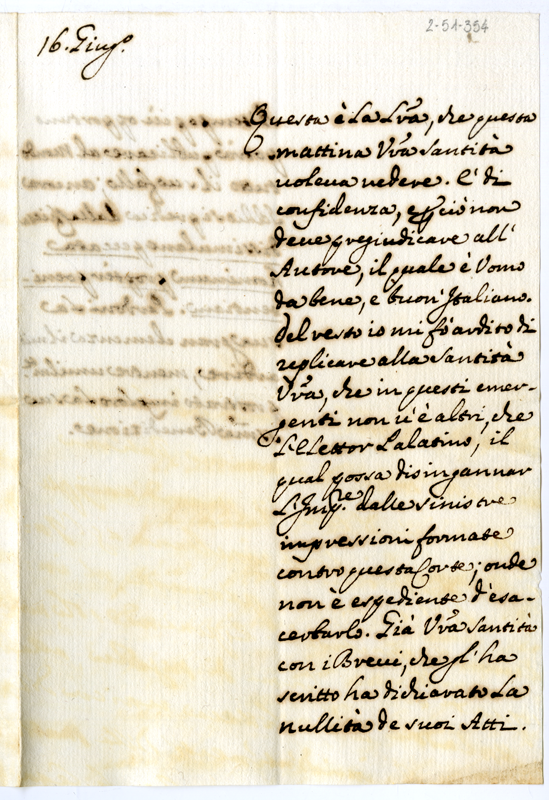 2-51-354
16. Giug.º
Questa è la Lrã, che questa
mattina Vrã Santità
voleva vedere. E' di
confidenza, e però non
deve pregiudicare all'
Autore, il quale è Uomo
da bene, e buon' Italiano.
Del resto io mi fò ardito di
replicare alla Santità
Vrã, che in questi emer-
genti non v'è altri, che
l'Elettor Palatino, il
qual possa disingannar
l'Imp.re dalle sinistre
impressioni formate
contro questa Corte; onde
non è espediente d'esa-
cerbarlo. Già Vrã Santità
con i Brevi, che gl' ha
scritto ha dichiarato la
nullità de suoi Atti.